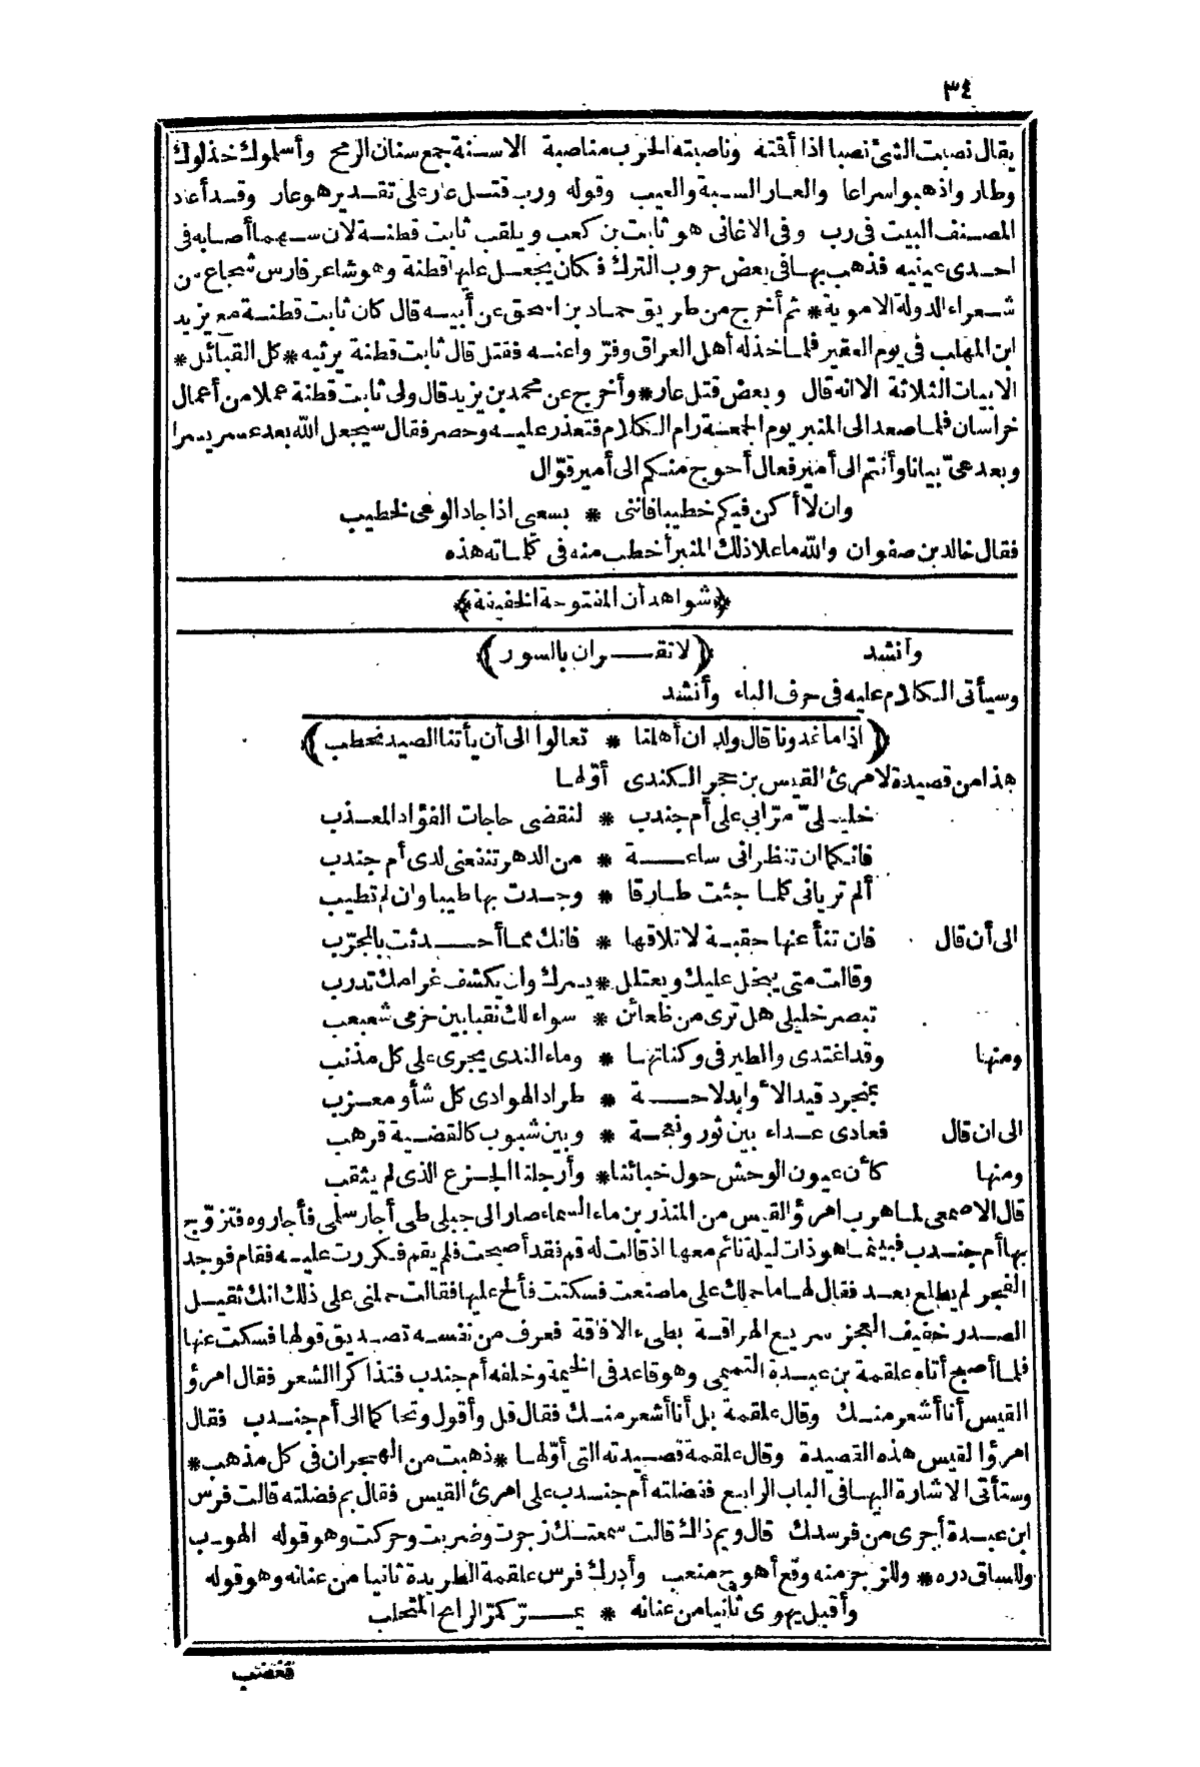 ٣٤
يقال نصبت الشئ نصبا اذا أقته وناصبته الحرب مناصبة الاسنة جمع سنان الرمح وأسلوك خذلوك
وطار واذهبوا سراعا والعار السبة والعيب وقوله ورب قتل عار على تقدير هو عار وقد أعاد
المصنف البيت فى رب وفى الاغانى هو ثابت بن كعب ويلقب ثابت قطنة لان سهما أصابه فى
احدى عينيه فذهب بها فى بعض حروب الترك فكان يجعل عليها قطنة وهو شاعر فارس شجاع من
شعراء الدولة الاموية * ثم أخرج من طريق حماد بن اسحق عن أبيه قال كان ثابت قطنة مع يزيد
ابن المهلب فى يوم العقير فلما خذله أهل العراق وفروا عنه فقتل قال ثابت قطنة يرثيه * كل القبائل *
الابيات الثلاثة الا انه قال وبعض قتل عار * وأخرج عن محمد بن يزيد قال ولى ثابت قطنة عملا من أعمال
خراسان فلما صعد الى المنبر يوم الجمعة رام الكلام فتعذر عليه وحصر فقال سيجعل الله بعد عسر يسرا
وبعد عىّ بيانا وأنتم الى أمير فعال أحوج منكم الى أمير قوّال
وان لا أكن فيكم خطيبا فاننى * بسعى اذا جاد الوغى لخطيب
فقال خالد بن صفوان والله ما علا ذلك المنبر أخطب منه فى كلماته هذه
﴿شواهد أن المفتوحة الخفيفة﴾
وأنشد ﴿لا تقــــران بالسور﴾
وسيأتى الكلام عليه فى حرف الباء وأنشد
﴿اذا ما غدونا قال ولد ان أهلنا * تعالوا الى أن يأتنا الصيد نحطب﴾
هذا من قصيدة لامرئ القيس بن حجر الكندى أوّلها
خليلىّ مرّابى على أم جندب * لنقضى حاجات الفؤاد المعذب
فانكما ان تنظرانى ساعة * من الدهر تنفعنى لدى أم جندب
ألم تريانى كلما جئت طارقا * وجدت بها طيبا وان لم تطيب
الى أن قال فان تنأ عنها حقبة لا تلاقها * فانك مما أحدثت بالمجرّب
وقالت متى يبخل عليك ويعتلل * يسرك وان يكشف غرامك تدرب
تبصر خليلى هل ترى من ظعائن * سوالك نقبا بين حزمى شعبعب
ومنها وقد اغتدى والطير فى وكناتها * وماء الندى يجرى على كل مذنب
بمنجرد قيد الأوابد لاحة * طراد الهوادى كل شأو معزب
الى ان قال فعادى عداء بين ثور ونعجة * وبين شبوب كالقضية قرهب
ومنها كأن عيون الوحش حول خبائنا * وأرجلنا الجزع الذى لم يثقب
قال الاصمعى لما هرب امرؤ القيس من المنذر بن ماء السماء صار الى جبلى طى أجا وسلمى فأجاروه فتزوّج
بها أم جندب فبينما هو ذات ليلة نائم معها اذ قالت له قم فقد أصبحت فلم يقم فكررت عليه فقام فوجد
الفجر لم يطلع بعد فقال لها ما حملك على ما صنعت فسكتت فألح عليها فقالت حملنى على ذلك انك ثقيل
الصدر خفيف العجز سريع الهراقة بطىء الافاقة فعرف من نفسه تصديق قولها فسكت عنها
فلما أصبح أتاه علقمة بن عبدة التميمى وهو قاعد فى الخيمة وخلفه أم جندب فتذاكرا الشعر فقال امرؤ
القيس أنا أشعر منك وقال علقمة بل أنا أشعر منك فقال قل وأقول وتحاكما الى أم جندب فقال
امرؤ القيس هذه القصيدة وقال علقمة قصيدته التى أوّلها * ذهبت من الهجران فى كل مذهب *
وستأتى الاشارة اليها فى الباب الرابع ففضلته أم جندب على امرئ القيس فقال بم فضلته قالت فرس
ابن عبدة أجرى من فرسك قال وبم ذاك قالت سمعتك زجرت وضربت وحركت وهو قوله الهوب
وللساق دره * وللزجر منه وقع أهوج منعب وأدرك فرس علقمة الطريدة ثانيا من عنانه وهو قوله
وأقبل يهوى ثانيا من عنانه * يمــر كمرّ الرايح المتحلب
فغضب